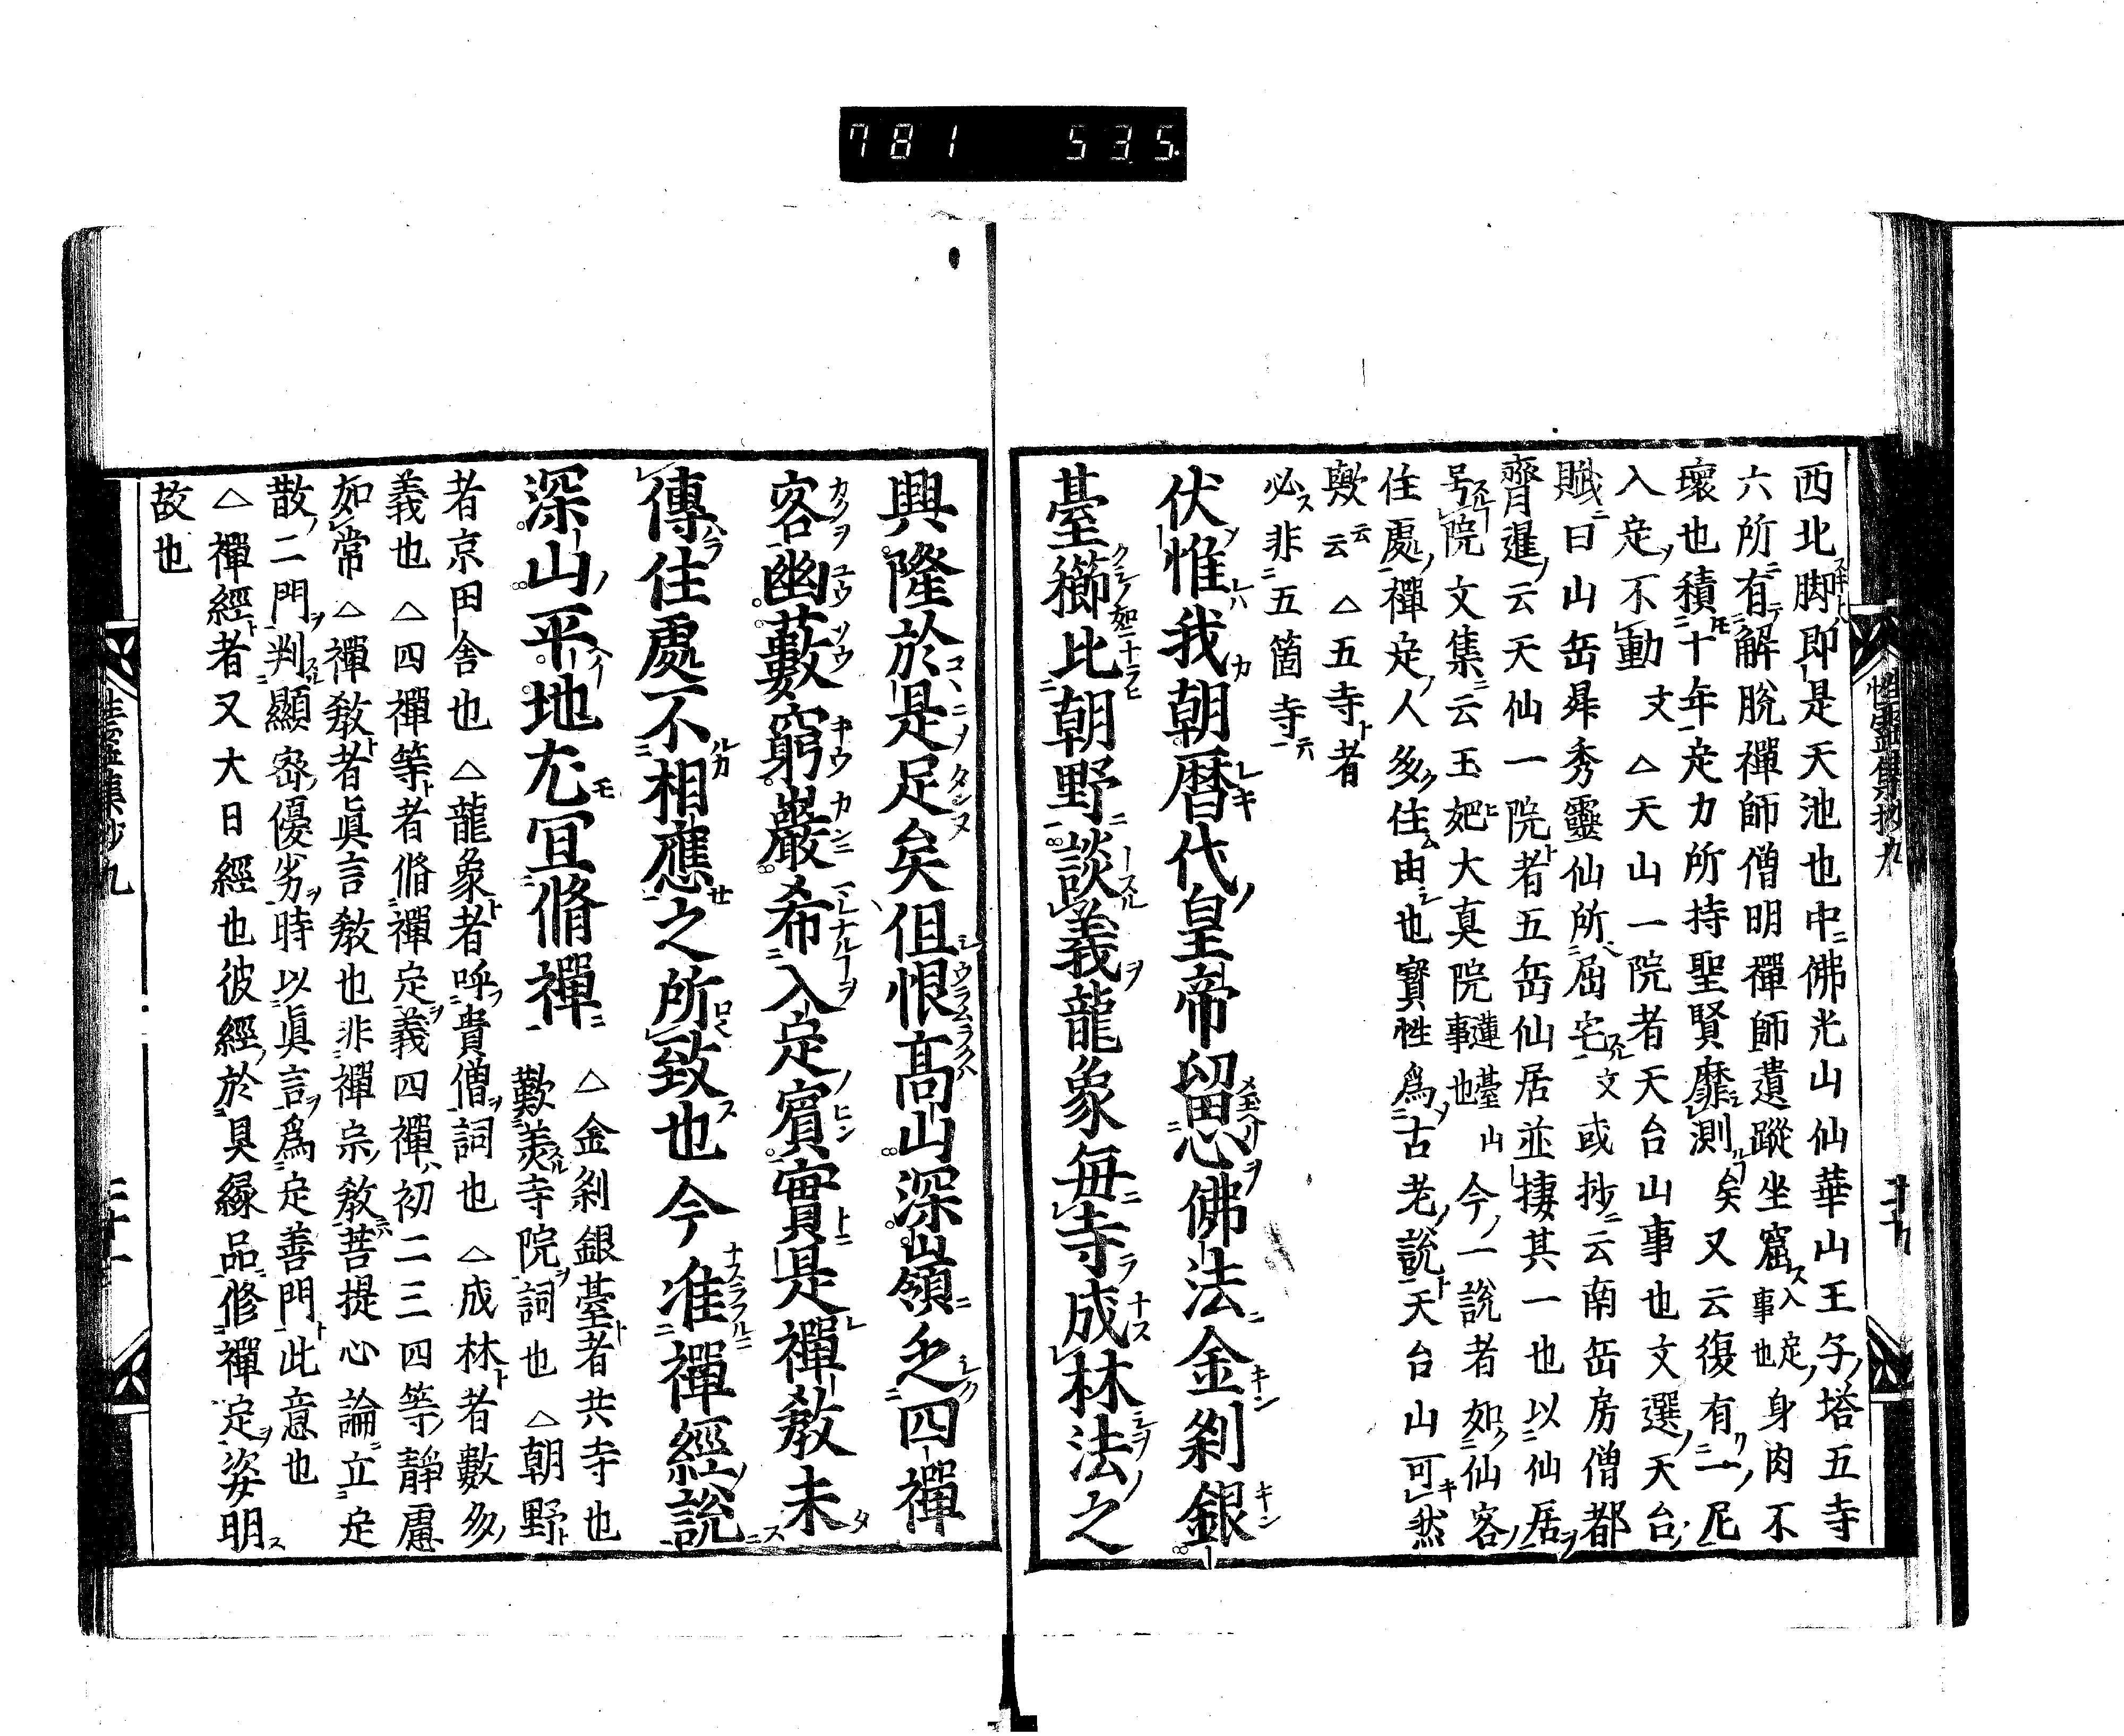 781 535.
西北脚即是天池也中佛光山仙華山王子塔五寺
六所有解脫禪師僧明禪師遺蹤坐窟入定事也身肉不
壞也積十年定力所持聖賢靡測矣又云復有一尼
入定不動文△天山一院者天台山事也文選天台
賦曰山岳昇秀靈仙所屈宅文或抄云南岳房僧都
齊暹云天仙一院者五岳仙居並捿其一也以仙居
号院文集云玉妃大真院蓮臺山事也今一說者如仙客
住處禪定人多住由也寳性爲古老說天台山可然
歟云云△五寺者
必非五箇寺云
伏惟我朝曆代皇帝留心佛法金刹銀
臺櫛比朝野談義龍象每寺成林法之
興隆於是足矣但恨髙山深嶺乏四禪
客幽藪窮巖希入定賓實是禪敎未
傳住處不相應之所致也今准禪經說
深山平地尤冝脩禪
△金刹銀臺者共寺也
歎羨寺院詞也△朝野
者京田舍也△龍象者呼貴僧詞也△成林者數多
義也△四禪等者脩禪定義四禪初二三四等靜慮
如常△禪敎者眞言敎也非禪宗敎菩提心論立定
散二門判顯密優劣時以眞言爲定善門此意也
△禪經者又大日經也彼經於具縁品修禪定姿明
故也
性靈集抄九